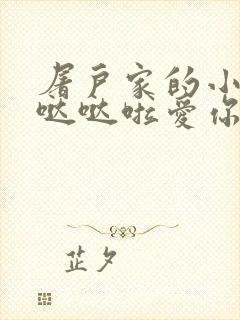 屠户家的小
哒哒啦爱你
芷夕